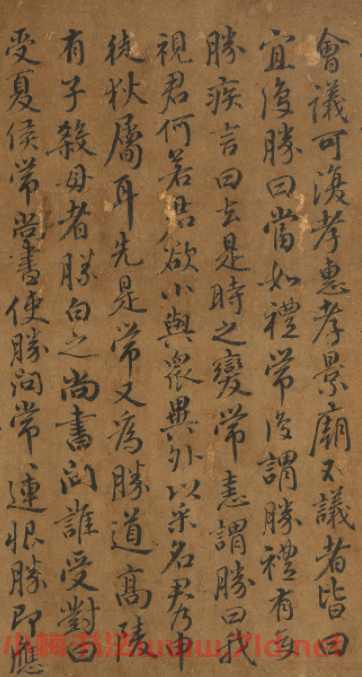 會議可復孝惠孝景廟不議者皆曰
宜復勝曰當如禮常復謂勝禮有變
勝疾言曰去是時之變常恚謂勝曰我
視君何若君欲小與眾異外以采名君乃申
徒狄屬耳先是常又為勝道高陵
有子殺母者勝白之尚書問誰受對曰
受夏侯常尚書使勝問常連恨勝即應
小梅书法